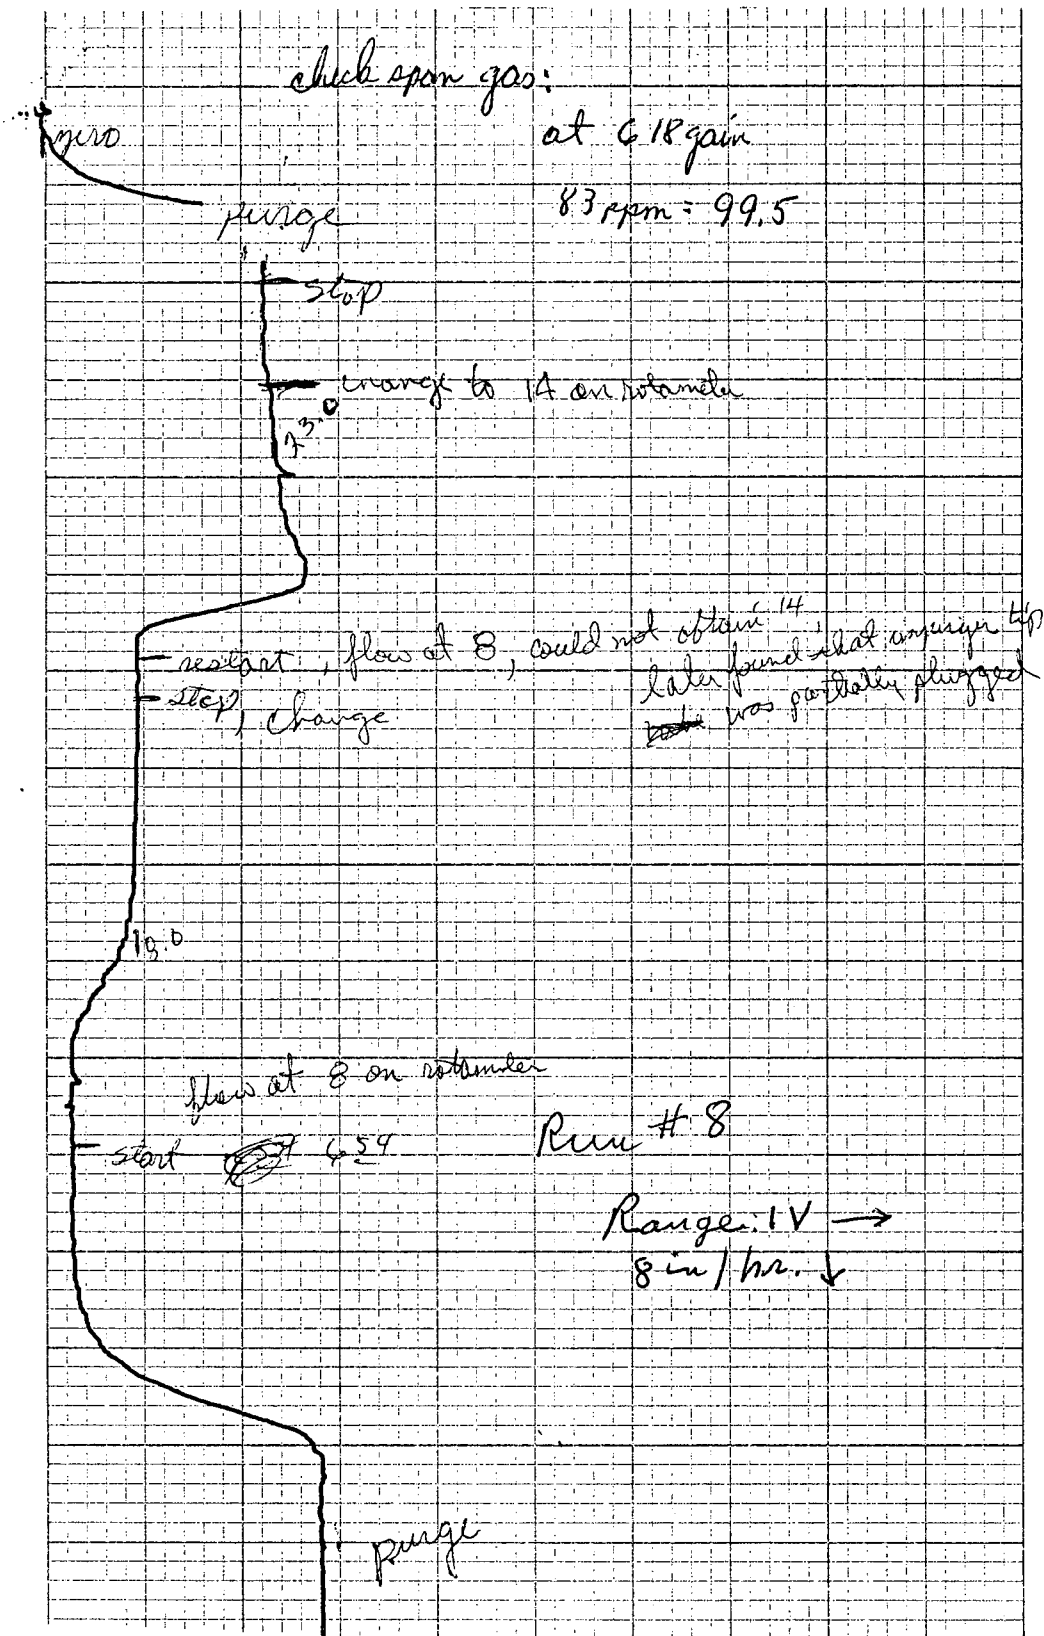 check span gas:
zero
at 618 gain
purge
83 ppm = 99.5
stop
change to 14 on rotameter
23.0
restart, flow at 8, could not obtain 14
later found that impinger tip
was partially plugged
stop, change
18.0
flow at 8 on rotameter
start 6 54
Run # 8
Range: 1V →
8 in / hr. ↓
purge